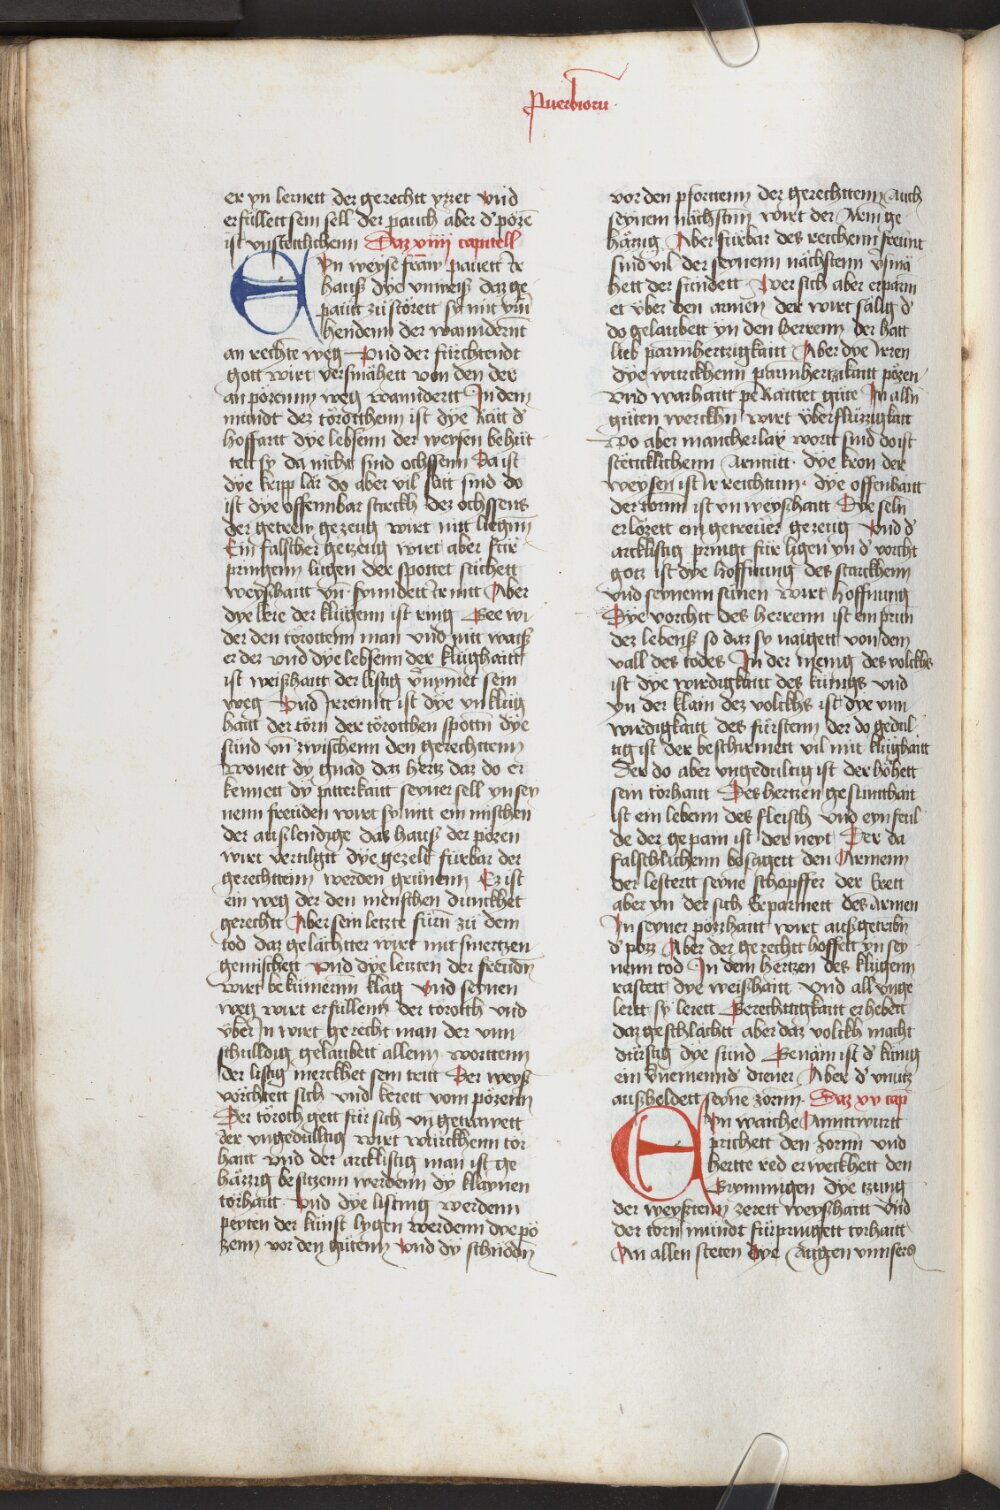 Puerbiorū
er yn lernett der gerechtt yzzet vnd
erfüllett sein sell der pauch aber d' pözē
ist vnsettlichenn Daz xiiij capitell
Ein weyse fraw pauett Ir
hauß dye vnweiß daz ge
pautt zü störett sy mit
hendenn der wanndernt
an rechte weg Vnd der fürchtendt
gott wirt versmähett von den der
an pözenn weg wanndertt In dem
mundt dez törotthenn ist dye Rütt d'
hoffartt dye lebsenn der weysen behüt
tett sy da nicht sind ochssenn Da ist
dye kripp lär do aber vil sätt sind do
ist dye offennbar sterckh dez ochssens
der getrew gezeug wirt nitt liegnn
Ein falscher getzeug wirt aber für
pringenn lugen der spottet süchett
weyßhaitt vn̄ fynndett Ir nitt Aber
dye lere der klügenn ist ring Gee wi
der den törottenn man vnd nitt waiß
er dez vnd dye lebsenn der klüghaitt
ist weißhaitt der listig vernymet sein
weg Vnd Irrennt ist dye vnklüg
haitt der törn der törotthen spottn dye
sünd vn̄ zwischenn den gerechttenn
wonett dy gnad daz hertz daz do er
kennett dy pitterkaitt seyner sell yn sey
nenn freüden wirt sy nitt ein mischen
der außlendige das hauß der pözen
wirt vertilgtt dye gezelt fürbar der
gerechttenn werden grünenn Ez ist
ein weg der den menschen dunckhet
gerechtt Aber sein letzte fürn zü dem
tod daz gelächtter wirt mit smertzen
gemischett vnd dye letzten der freudn̄
wirt bekümernn klag vnd seinen
weg wirt erfüllenn der törotth vnd
vber In wirt gerecht man der vnn
schulldig gelaubett allenn worttenn
der listig merckhet sein tritt Der weyß
vörchtett sich vnd kerett vom pözenn
Der töroth gett für sich vn getrawett
der vngedulltig wirt würckhenn tor
haitt vnd der arcklistig man ist ge
häzzig besitzenn werdenn dy klaynen
törhaitt Vnd dye listing werdenn
peyten der künst lygen werdenn dye pö
zenn vor den gütenn vnd dy schnödn̄
vor den pforttenn der gerechttenn Auch
seynem nächstnn wirt der Arm ge
häzzig Aber fürbar des reichenn freunt
sind vil der seynenn nächstenn v'smä
hett der sündett Wer sich aber erparm
et vber den armen der wirt sälig d'
do gelaubett yn den herrenn der hatt
lieb parmhertzigkaitt Aber dye Irren
dye würckhenn parmhertzikaitt pözen
vnd warhaitt peraittet güte In alln
güten werckhn̄ wirt vberflüzzigkait
wo aber mancherlay wortt sind do ist
stetticklichenn Armütt dye kron der
weysen ist Ir reichtum dye offenbaitt
der törnn ist vnweyßhaitt Dye seln
erlözett ein getrewer gezeug Vnd d'
arcklistig pringt für ligen yn d' vorcht
gotz ist dye hoffnung des starckhenn
vnd seynenn sünen wirt hoffnung
Dye vorchtt des herrenn ist ein prun
dez lebenß so daz sy naigett von dem
vall des todes In der menig des volckhs
ist dye wirdigkaitt des künigs vnd
yn der klain dez volckhs ist dye vnn
wirdigkaitt des fürstenn der do gedul
tig ist der beschirmett vil mit klüghaitt
Der do aber vngedultig ist der höhett
sein törhaitt Des hertzen gesuntthait
ist ein lebenn des fleisch vnd eyn feul
de der gepain ist der neyt Der da
falschlichenn besagett den Armenn
der lestertt seynē schöpffer der Erett
aber yn der sich Erparmett des Armen
In seyner pözzhaitt wirt außgetribn̄
d' pöz Aber der gerechtt hoffett yn sey
nenn tod In dem hertzen des klügenn
rastett dye weißhaitt Vnd all vnge
lertt sy lerett Gerechttigkaitt erhebett
daz geschlächtt aber daz volckh macht
dürstig dye sünd Genäm ist d' künig
ein v'nemennd diener Aber d' vnutz
außheldett seynē zornn Daz xv cap
Ein waiche Anntwurtt
prichett den zornn vnd
hertte red erweckhett den
Grymmigen dye tzung
der weyßtenn zerett weyßhaitt vnd
der törn mundt fürpringett torhaitt
An allen steten Dye Augen vnnsers